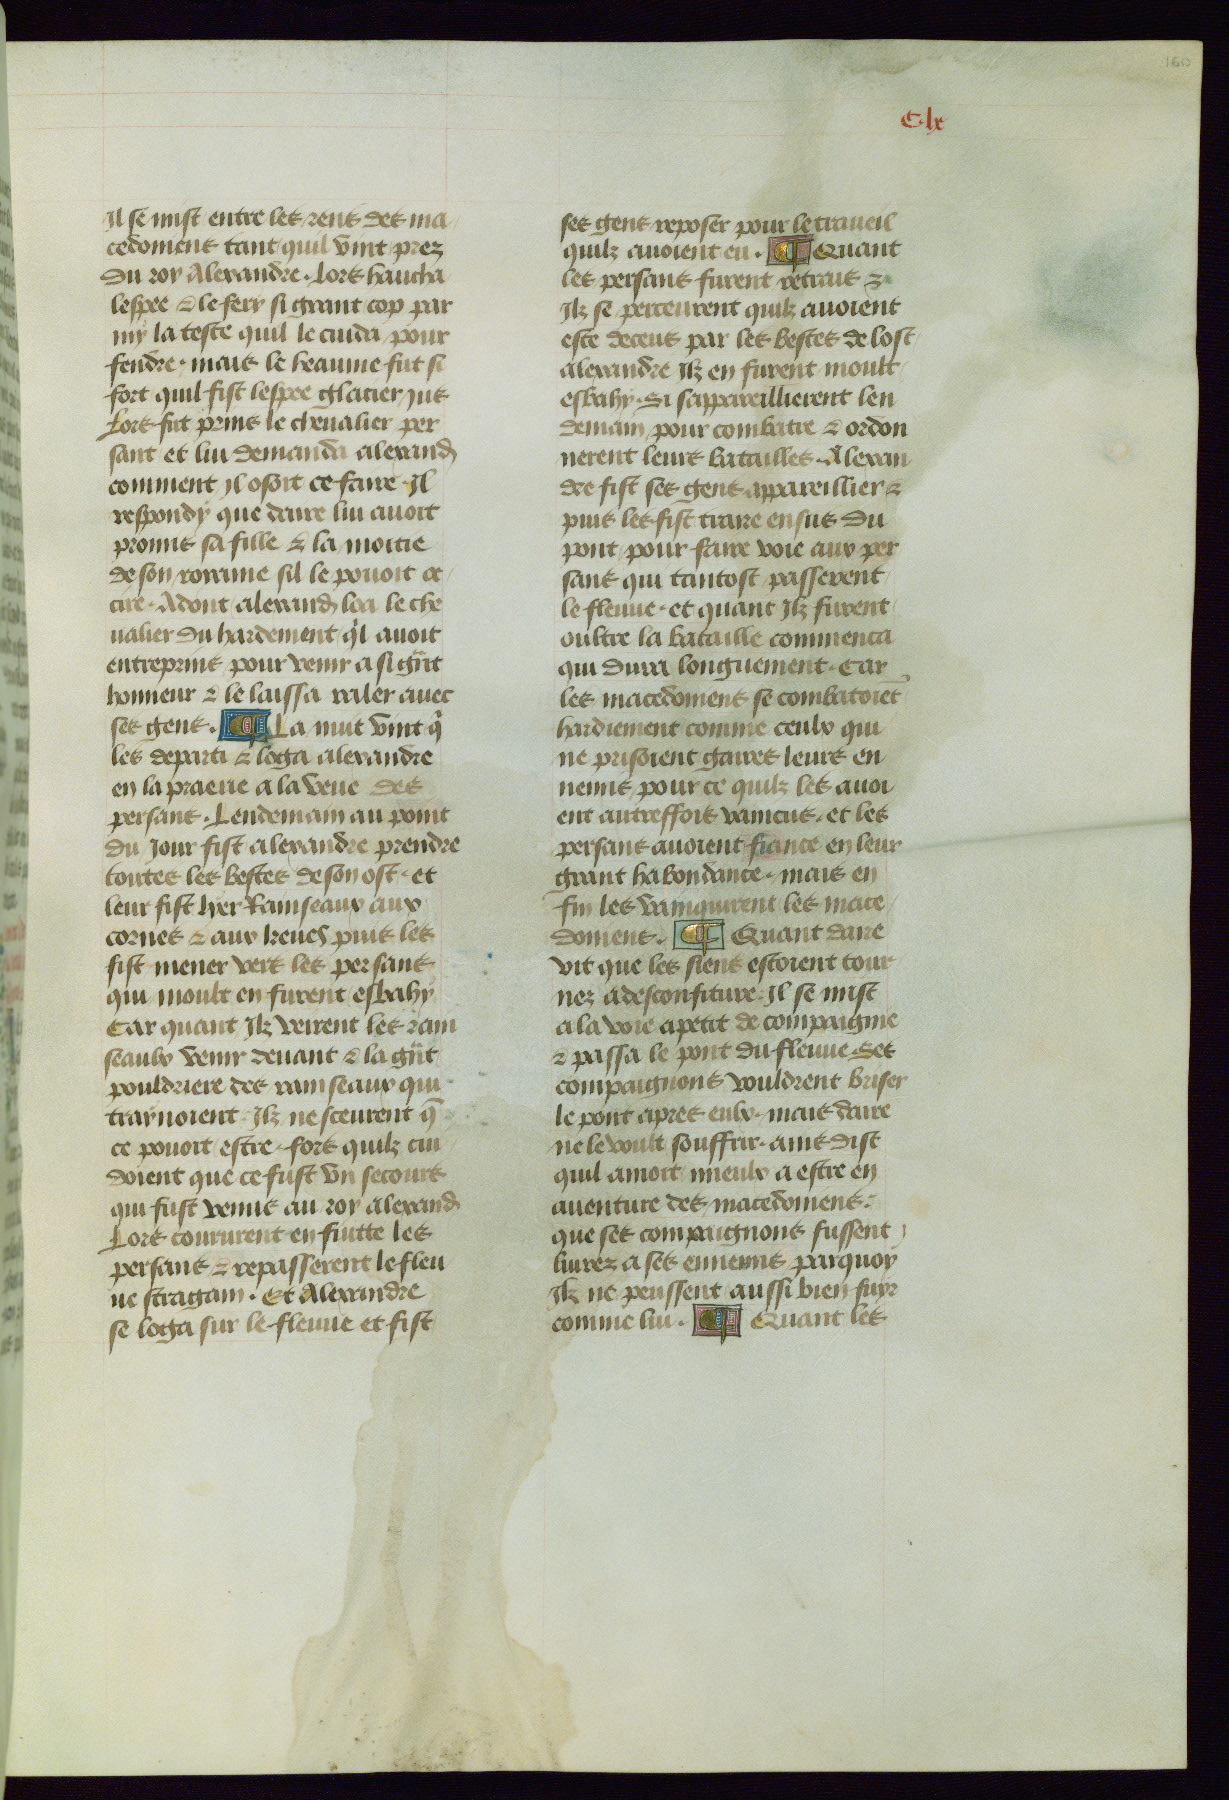 160
C.lx
Il se mist entre les rens des ma
cedoniens tant quil vint prez
du roy Alexandre. Lors haucha
lespee & le fery si grant cop par
my la teste quil le cuida pour
fendre. mais le heaume fut si
fort quil fist lespee glacier jus
Lors fut prins le chevalier per
sant et lui demanda alexand
comment Il osoit ce faire Il
respondy que daire lui avoit
promis sa fille & la moitie
de son roiaume sil le povoit oc
cire. Adont alexand loa le che
valier du hardement ql avoit
entreprins pour venir a si gnt
honneur & le laissa raler avec
ses gens. ¶ La nuit vint q
les departi & loga alexandre
en la praerie a la veue des
persans. Lendemain au point
du jour fist alexandre prendre
toutes les bestes de son ost. et
leur fist lyer Rainseaux aux
cornes & aux keues puis les
fist mener vers les persans
qui moult en furent esbahy
Car quant Ilz veirent les rain
seaulx venir devant & la gnt
pouldriere des rainseaux qui
traynoient. Ilz ne sceurent q
ce povoit estre. fors quilz cui
doient que ce fust un secours
qui fust venus au roy alexand
Lors coururent en fuitte les
persans & repasserent le fleu
ve stragam. Et Alexandre
se loga sur le fleuve et fist
ses gens reposer pour le traveil
quilz avoient eu. ¶ Quant
les persans furent retrais &
Ilz se perceurent quilz avoient
este deceus par les bestes de lost
alexandre Ilz en furent moult
esbahy. Si sappareillierent len
demain pour combatre & ordon
nerent leurs batailles. Alexan
dre fist ses gens appareillier &
puis les fist traire ensus du
pont pour faire voie aux per
sans qui tantost passerent
le fleuve. et quant Ilz furent
oultre la bataille commenca
qui dura longuement. Car
les macedoniens se combatoiet
hardiement comme ceulx qui
ne prisoient gaires leurs en
nemis pour ce quilz les avoi
ent autreffois vaincus. et les
persans avoient fiance en leur
grant habondance. mais en
fin les vainquirent les mace
doniens. ¶ Quant daire
vit que les siens estoient tour
nez a desconfiture. Il se mist
a la voie a petit de compaignie
& passa le pont du fleuve Ses
compaignons vouldrent briser
le pont apres eulx. mais daire
ne le voult souffrir. ains dist
quil amoit mieulx a estre en
aventure des macedoniens.
que ses compaignons fussent
livrez a ses ennemis parquoy
Ilz ne peussent aussi bien fuyr
comme lui. ¶ Quant les